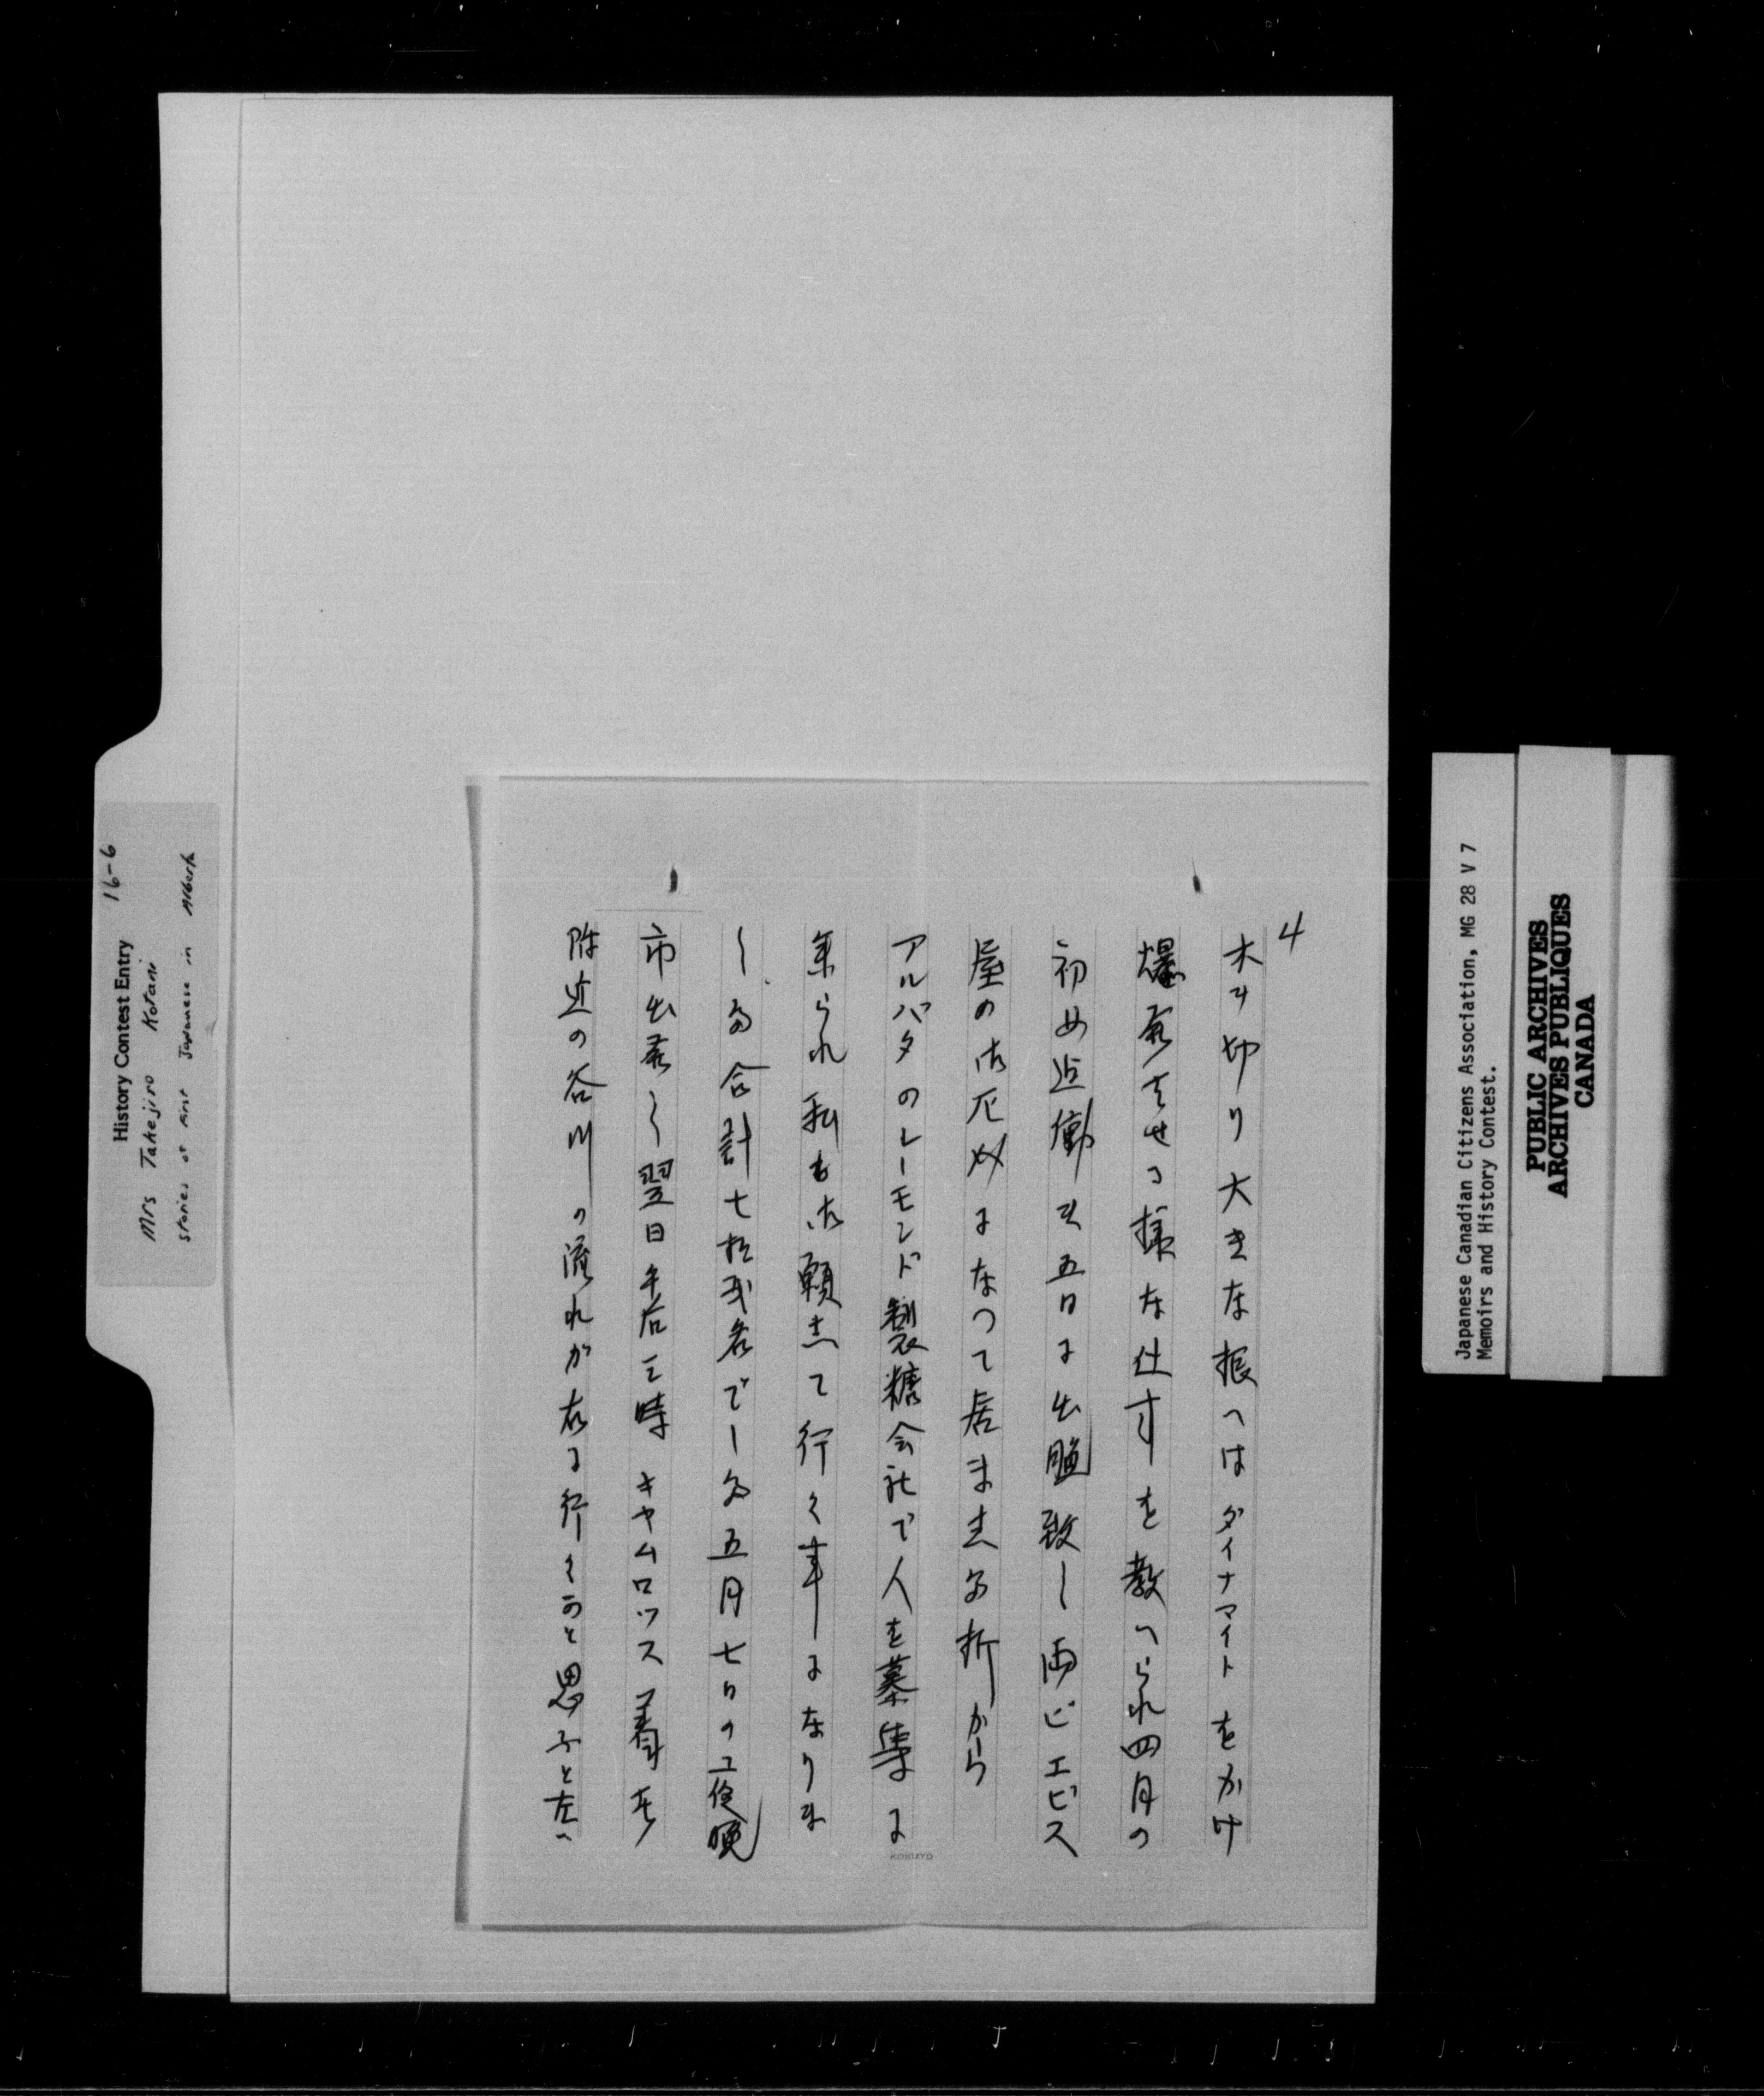 4
木を切り大きな根へはダイナマイトをかけ
爆発させる様な仕事を教へられ四月の
初め迄働き五日に出発致し両ビエビス
屋の御厄介になつて居ました折から
アルバタのレーモンド製糖会社で人を募集に
来られ私も御願して行く事になりま
した合計七拾弐名でした五月七日の夜晩
市出発し翌日午后三時キヤムロツス着
附近の谷川の流れが右に行くかと思ふと左へ
History Contest Entry 16-6
Mrs Takejiro Kotani
stories of first Japanese in Alberta
KOKUYO
Japanese Canadian Citizens Association, MG 28 V 7
Memoirs and History Contest.
PUBLIC ARCHIVES
ARCHIVES PUBLIQUES
CANADA